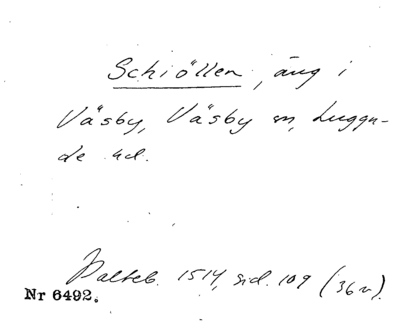 Schiöllen, äng i
Väsby, Väsby sn, Luggu-
de hd.
Palteb. 1514, sid. 109 (36 v).
Nr 6492.